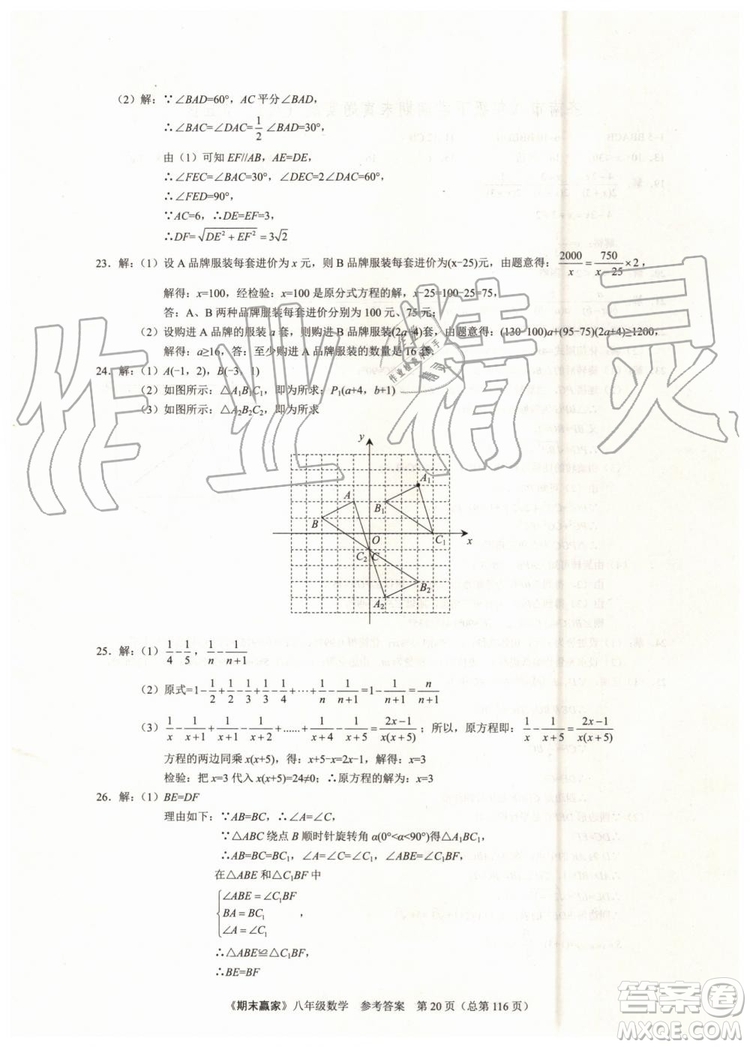 （2）解：∵∠BAD=60°，AC 平分∠BAD，
∴∠BAC=∠DAC=1/2∠BAD=30°，
由（1）可知 EF//AB，AE=DE，
∴∠FEC=∠BAC=30°，∠DEC=2∠DAC=60°，
∴∠FED=90°，
∵AC=6，∴DE=EF=3，
∴DF=√(DE²+EF²)=3√2
23．解：（1）设 A 品牌服装每套进价为 x 元，则 B 品牌服装每套进价为(x−25)元，由题意得：2000/x=750/(x−25)×2，
解得：x=100，经检验：x=100 是原分式方程的解，x−25=100−25=75，
答：A、B 两种品牌服装每套进价分别为 100 元、75 元；
（2）设购进 A 品牌的服装 a 套，则购进 B 品牌服装(2a+4)套，由题意得：(130−100)a+(95−75)(2a+4)≥1200，
解得：a≥16，答：至少购进 A 品牌服装的数量是 16 套．
24．解：（1）A(−1，2)，B(−3，1)
（2）如图所示：△A₁B₁C₁，即为所求；P₁(a+4，b+1)
（3）如图所示：△A₂B₂C₂，即为所求
y
A₁
A
B₁
B
O
C₁
x
C₂
C
B₂
A₂
25．解：（1）1/4−1/5，1/n−1/(n+1)
（2）原式=1−1/2+1/2−1/3+1/3−1/4+⋯+1/n−1/(n+1)=1−1/(n+1)=n/(n+1)
（3）1/x−1/(x+1)+1/(x+1)−1/(x+2)+......+1/(x+4)−1/(x+5)=(2x−1)/(x(x+5))；所以，原方程即：1/x−1/(x+5)=(2x−1)/(x(x+5))
方程的两边同乘 x(x+5)，得：x+5−x=2x−1，解得：x=3
检验：把 x=3 代入 x(x+5)=24≠0；∴原方程的解为：x=3
26．解：（1）BE=DF
理由如下：∵AB=BC，∴∠A=∠C，
∵△ABC 绕点 B 顺时针旋转角 α(0°<α<90°)得△A₁BC₁，
∴∠ABE=∠C₁BF，AB=BC=A₁B=BC₁，
在△ABE 和△C₁BF 中
∠ABE=∠C₁BF
BA=BC₁
∠A=∠C₁
∴△ABE≌△C₁BF
∴BE=BF
《期末赢家》八年级数学　参考答案　第 20 页（总第 116 页）
作业精灵
答案圈
MXQE.COM